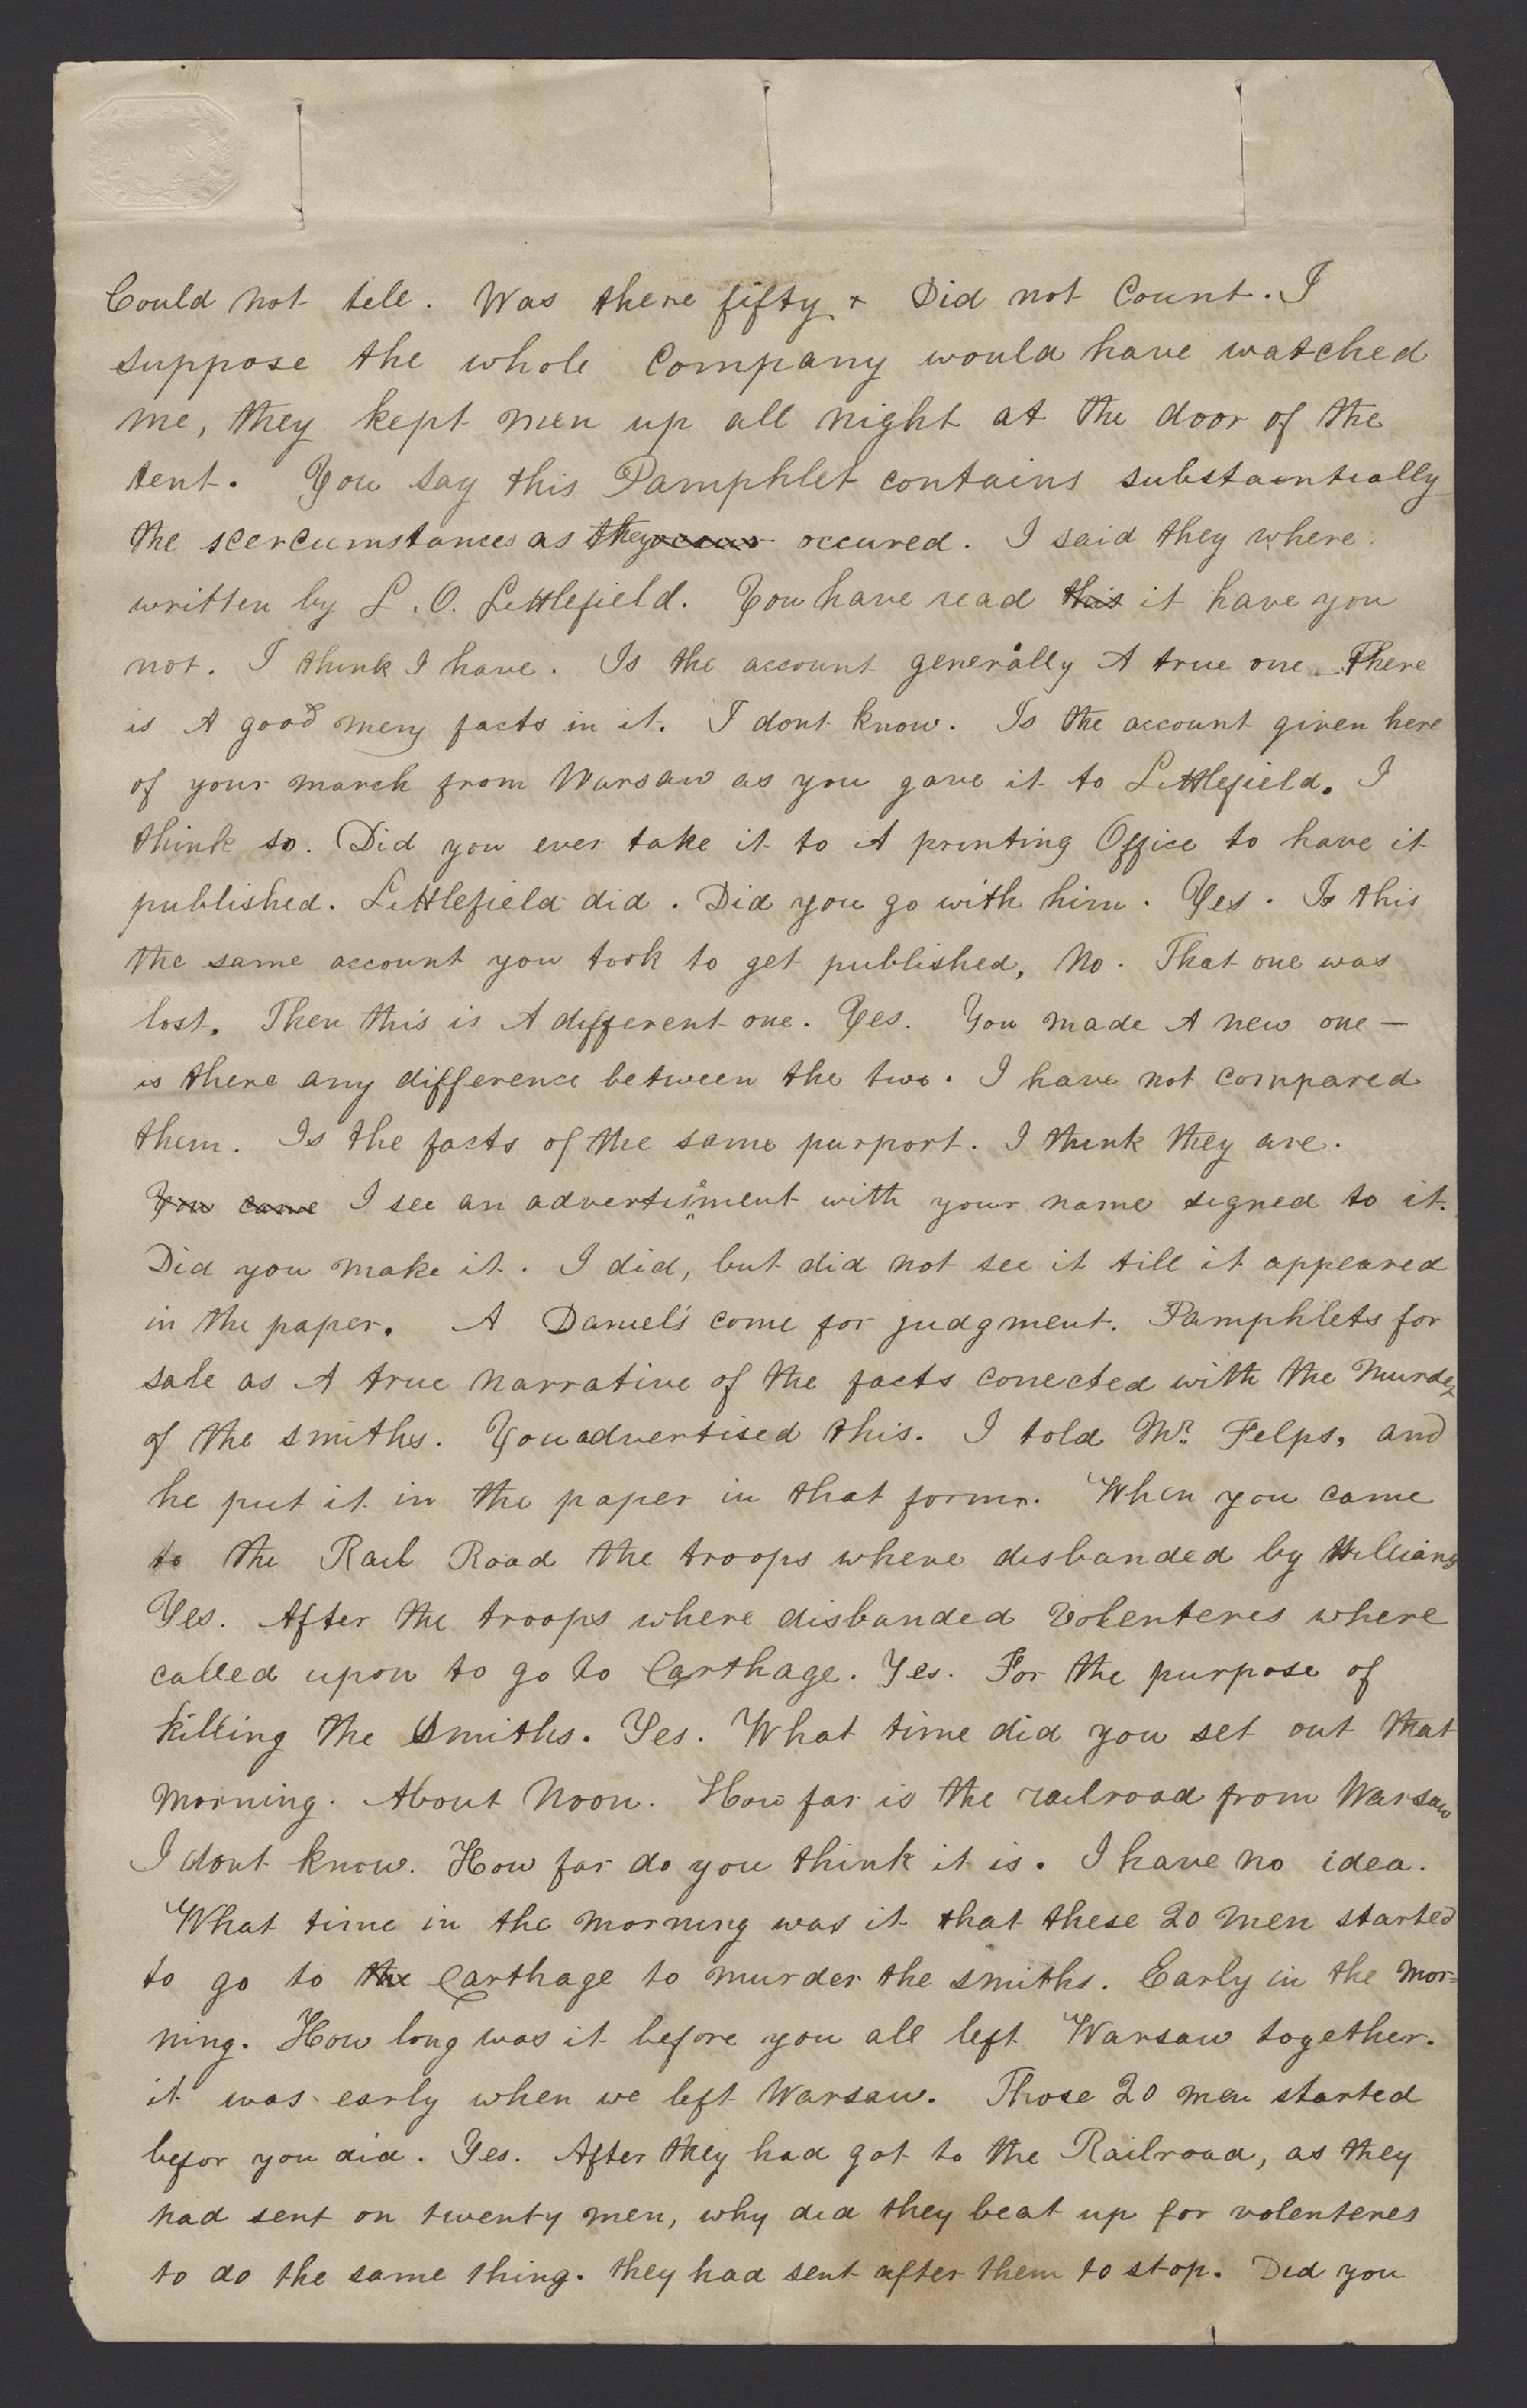 Could not tell. Was there fifty + Did not Count. I
suppose the whole Company would have watched
me, they kept men up all night at the door of the
tent. You say this Pamphlet contains substaintially
the scercumstances as they occured. I said they where
written by L. O. Littlefield. You have read this it have you
not. I think I have. Is the account generally A true one – There
is A good meny facts in it. I dont know. Is the account given here
of your march from Warsaw as you gave it to Littlefield. I
think so. Did you ever take it to A printing Office to have it
published. Littlefield did. Did you go with him. Yes. Is this
the same account you took to get published, No. That one was
lost. Then this is A different one. Yes. You made A new one —
is there any difference between the two. I have not compared
them. Is the facts of the same purport. I think they are.
You came I see an advertisement with your name signed to it.
Did you make it. I did, but did not see it till it appeared
in the paper. A Daniels come for judgment. Pamphlets for
sale as A true narrative of the facts conected with the Murder
of the smiths. You advertised this. I told Mr. Felps, and
he put it in the paper in that form. When you came
to the Rail Road the troops where disbanded by Williams
Yes. After the troops where disbanded Volenteres where
called upon to go to Carthage. Yes. For the purpose of
killing the Smiths. Yes. What time did you set out that
morning. About Noon. How far is the railroad from Warsaw
I dont know. How far do you think it is. I have no idea.
What time in the morning was it that these 20 men started
to go to the Carthage to murder the smiths. Early in the mor=
ning. How long was it before you all left Warsaw together.
it was early when we left Warsaw. Those 20 men started
befor you did. Yes. After they had got to the Railroad, as they
had sent on twenty men, why did they beat up for volenteres
to do the same thing. they had sent after them to stop. Did you